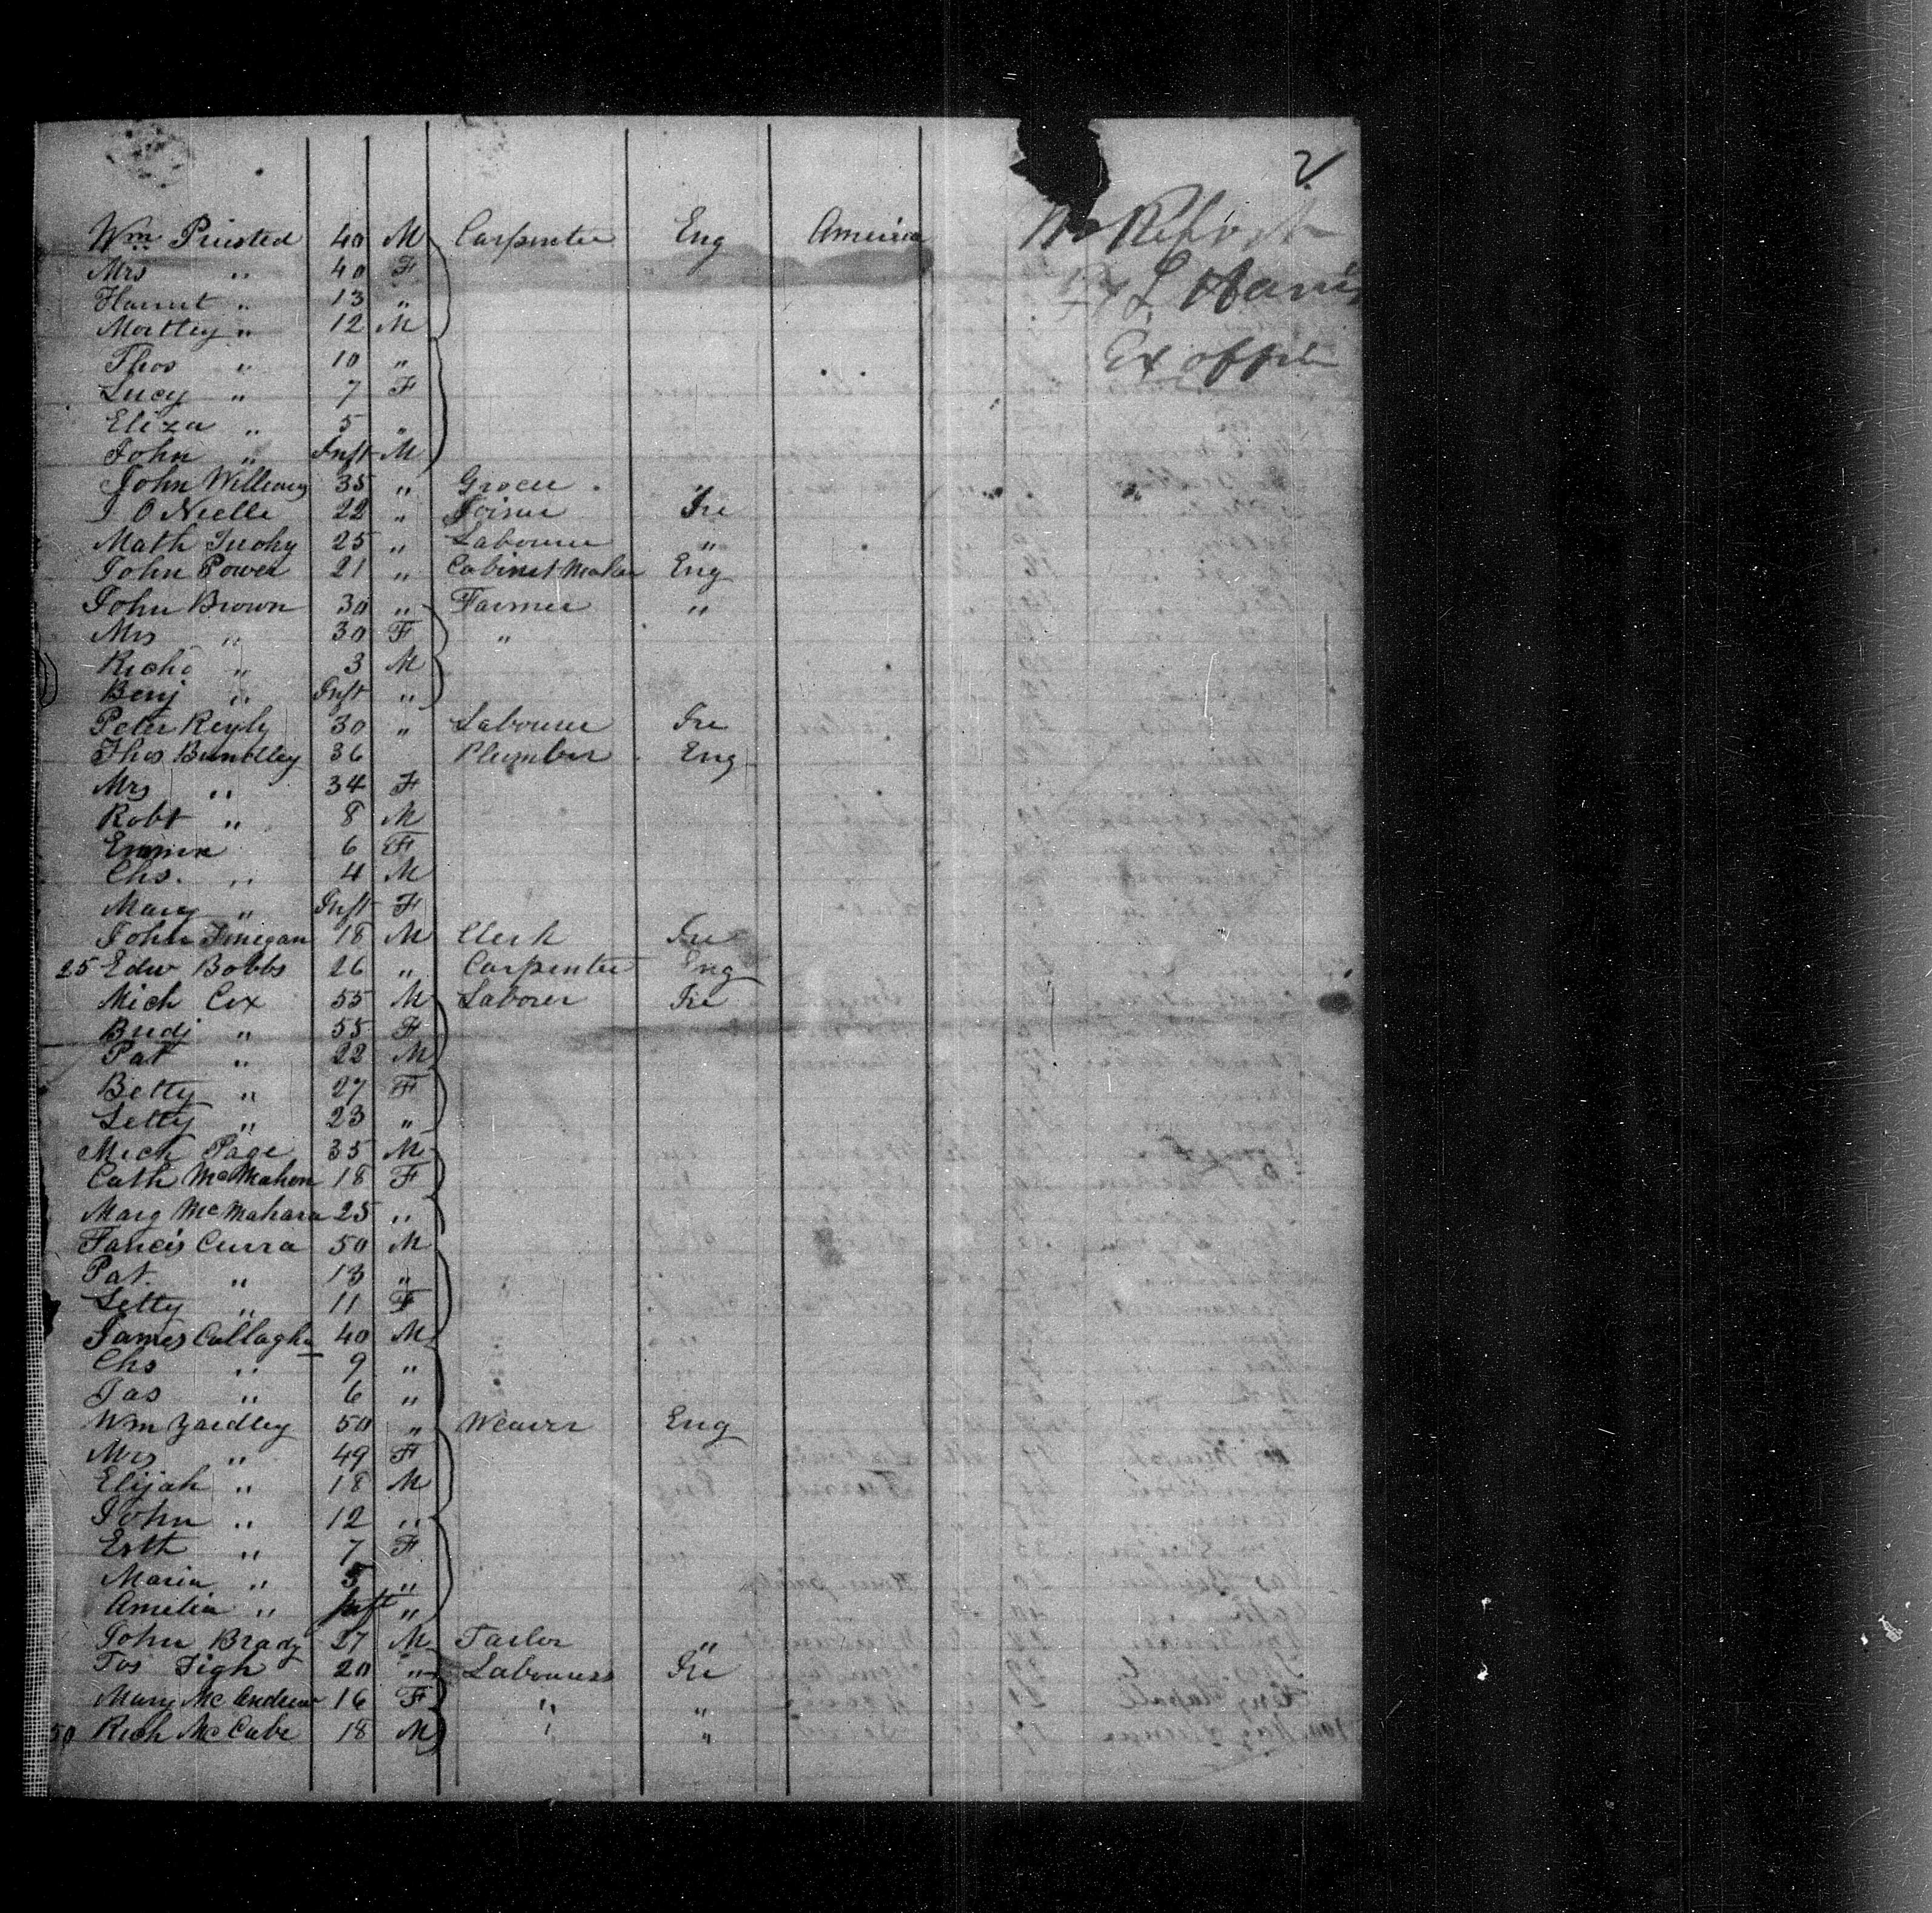 2
Wm Priested 40 M Carpenter Eng America
Mrs " 40 F
Harriet " 13 "
Mortley " 12 M
Thos " 10 "
Lucy " 7 F
Eliza " 5 "
John " Inft M
John Williams 35 " Grocer "
J O Neille 22 " Joiner Ire
Math Tuohy 25 " Labourer "
John Power 21 " Cabinet Maker Eng
John Brown 30 " Farmer "
Mrs " 30 F "
Richd " 3 M
Benj " Inft "
Peter Reyly 30 " Labourer Ire
Thos Buntlley 36 Plumber Eng
Mrs " 34 F
Robt " 8 M
Emma 6 F
Chs. " 4 M
Mary " Inft F
John Finegan 18 M Clerk Ire
25 Edw Bobbs 26 " Carpenter Eng
Mich Cox 55 M Laborer Ire
Bridj " 55 F
Pat " 22 M
Betty " 27 F
Letty " 23 "
Mich Page 35 M
Cath McMahon 18 F
Marg McMahara 25 "
Fancis Curra 50 M
Pat. " 13 "
Letty " 11 F
James Callaghn 40 M
Chs " 9 "
Jas " 6 "
Wm Yardley 50 " Weaver Eng
Mrs " 49 F
Elijah " 18 M
John " 12 "
Esth " 7 F
Maria " 5 "
Amelia " Inft "
John Brady 27 M Tailor "
Jos Tigh 20 " Labourers Ire
Mary McAndrew 16 F " "
50 Rich McCabe 18 M " "
L Harris
Ex offic